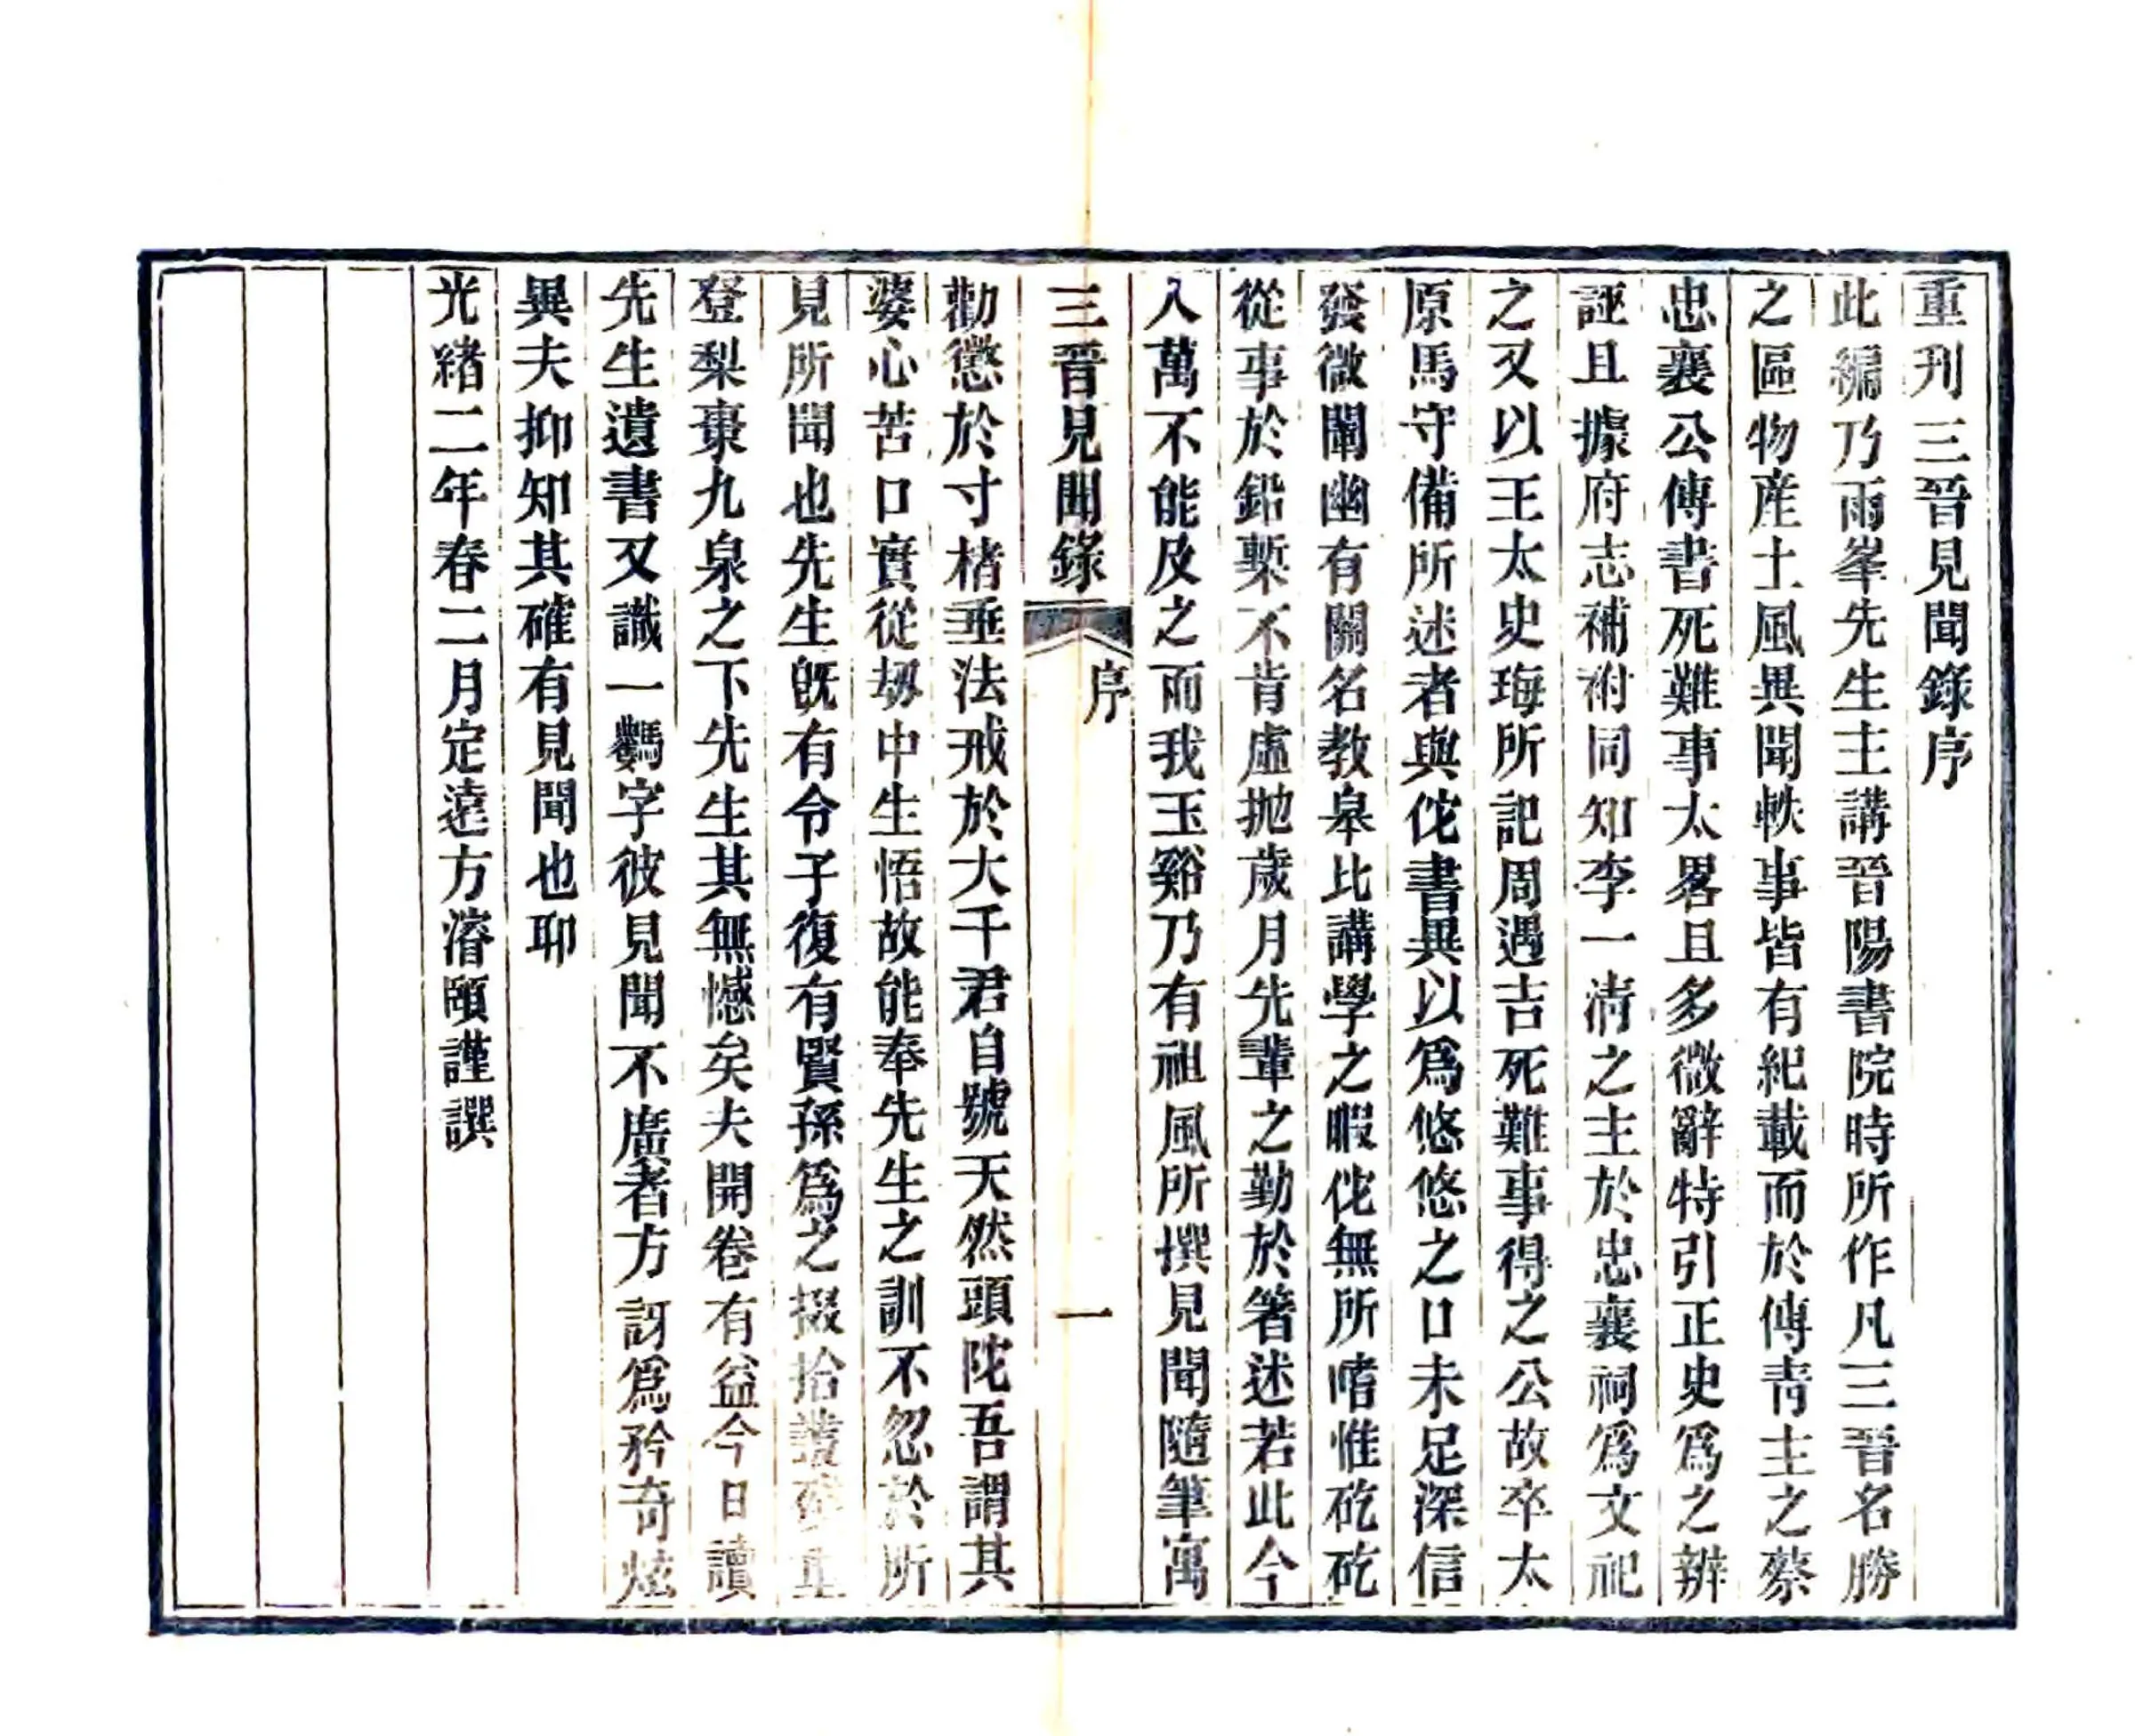 重刊三晉見聞錄序
此編乃雨峯先生主講晉陽書院時所作凡三晉名勝
之區物産土風異聞軼事皆有紀載而於傅青主之蔡
忠襄公傳書死難事太畧且多微辭特引正史爲之辨
誣且據府志補祔同知李一淸之主於忠襄祠爲文祀
之又以王太史珻所記周遇吉死難事得之公故卒太
原馬守備所述者與佗書異以爲悠悠之口未足深信
發微闡幽有關名敎皋比講學之暇佗無所嗜惟矻矻
從事於鉛槧不肯虛拋歲月先輩之勤於箸述若此今
人萬不能及之而我玉谿乃有祖風所撰見聞隨筆寓
三晉見聞錄 序 一
勸懲於寸楮垂法戒於大千君自號天然頭陀吾謂其
婆心苦口實從刼中生悟故能奉先生之訓不忽於所
見所聞也先生旣有令子復有賢孫爲之掇拾叢殘重
登梨棗九泉之下先生其無憾矣夫開卷有益今日讀
先生遺書又識一鸘字彼見聞不廣者方訝爲矜奇炫
異夫抑知其確有見聞也耶
光緖二年春二月定遠方濬頤謹譔